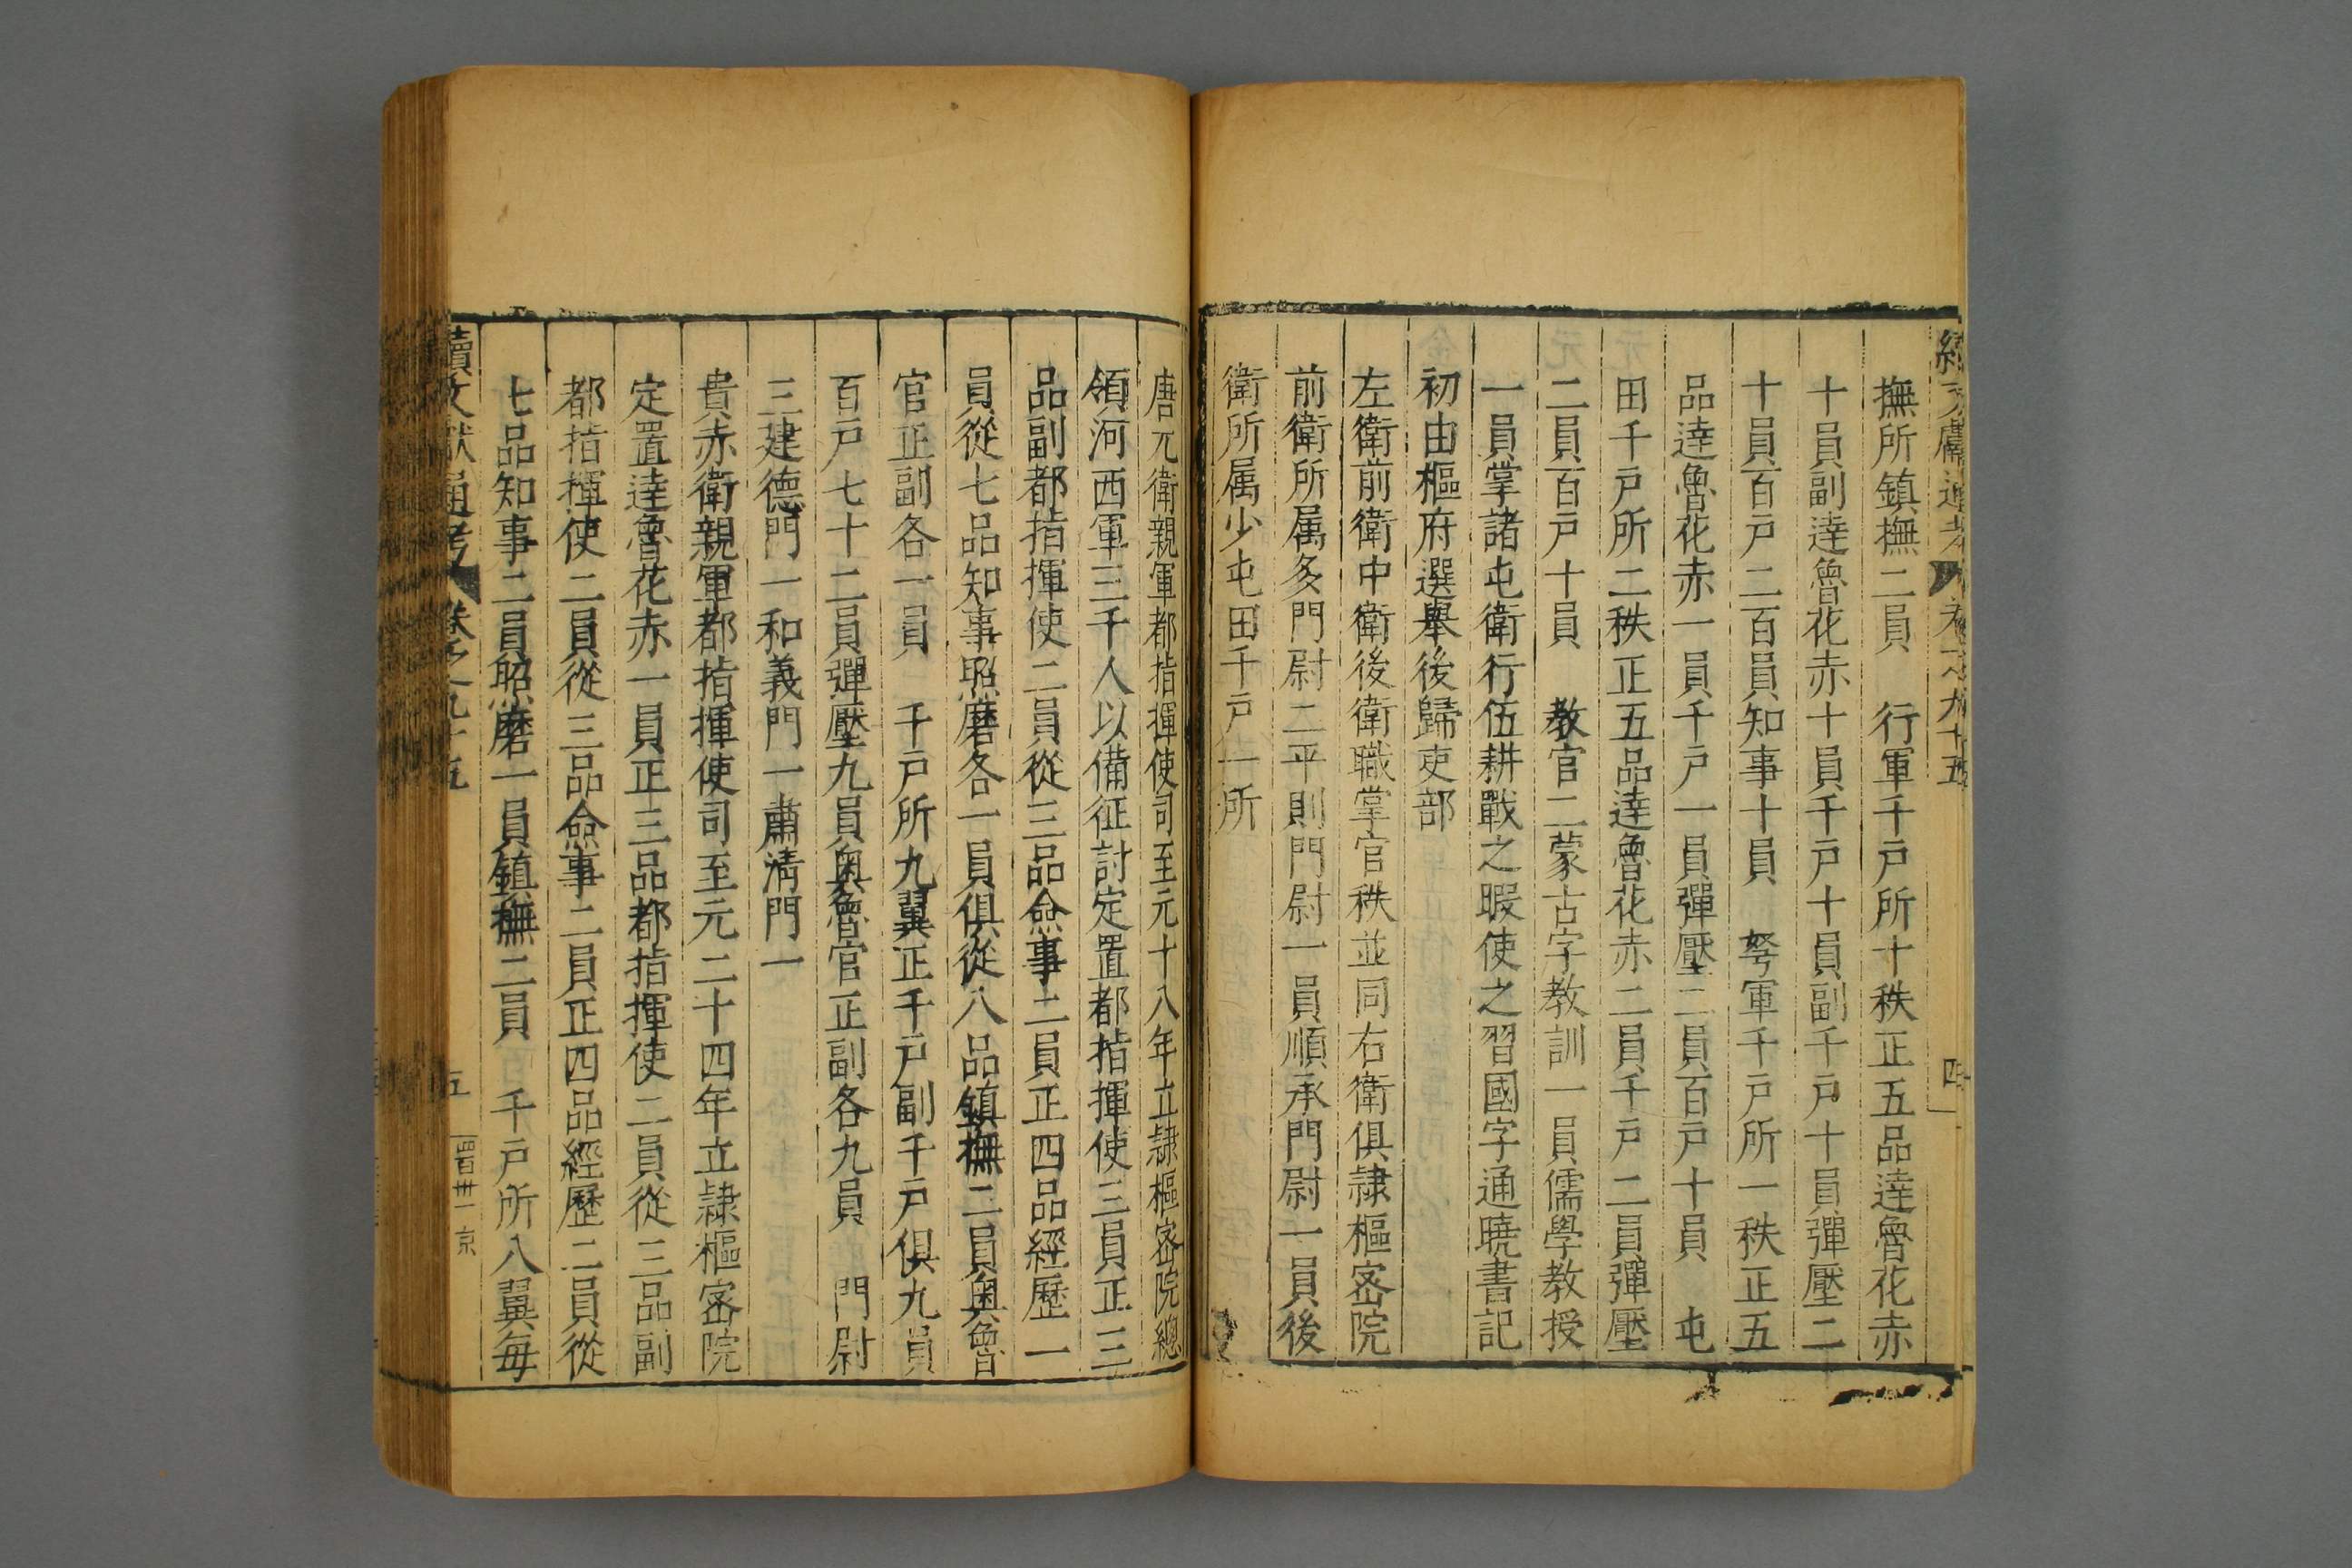 撫所鎮撫二員　行軍千戸所十秩正五品達魯花赤
十員副達魯花赤十員千戸十員副千戸十員彈壓二
十員百戸二百員知事十員　弩軍千戸所一秩正五
品達魯花赤一員千戸一員彈壓二員百戸十員　屯
田千戸所二秩正五品達魯花赤二員千戸二員彈壓
二員百戸十員　教官二蒙古字教訓一員儒學教授
一員掌諸屯衛行伍耕戰之暇使之習國字通曉書記
初由樞府選舉後歸吏部
左衛前衛中衛後衛職掌官秩並同右衛俱隷樞宻院
前衛所属多門尉二平則門尉一員順承門尉一員後
衛所属少屯田千戸一所
唐兀衛親軍都指揮使司至元十八年立隷樞宻院總
領河西軍三千人以備征討定置都指揮使三員正三
品副都指揮使二員從三品僉事二員正四品經歷一
員從七品知事照磨各一員俱從八品鎮撫二員奥魯
官正副各一員　千戸所九翼正千戸副千戸俱九員
百戸七十二員彈壓九員奥魯官正副各九員　門尉
三建德門一和義門一肅清門一
貴赤衛親軍都指揮使司至元二十四年立隷樞宻院
定置達魯花赤一員正三品都指揮使二員從三品副
都指揮使二員從三品僉事二員正四品經歷二員從
七品知事二員照磨一員鎮撫二員　千戸所八翼每
續文獻通考　卷之九十五　五